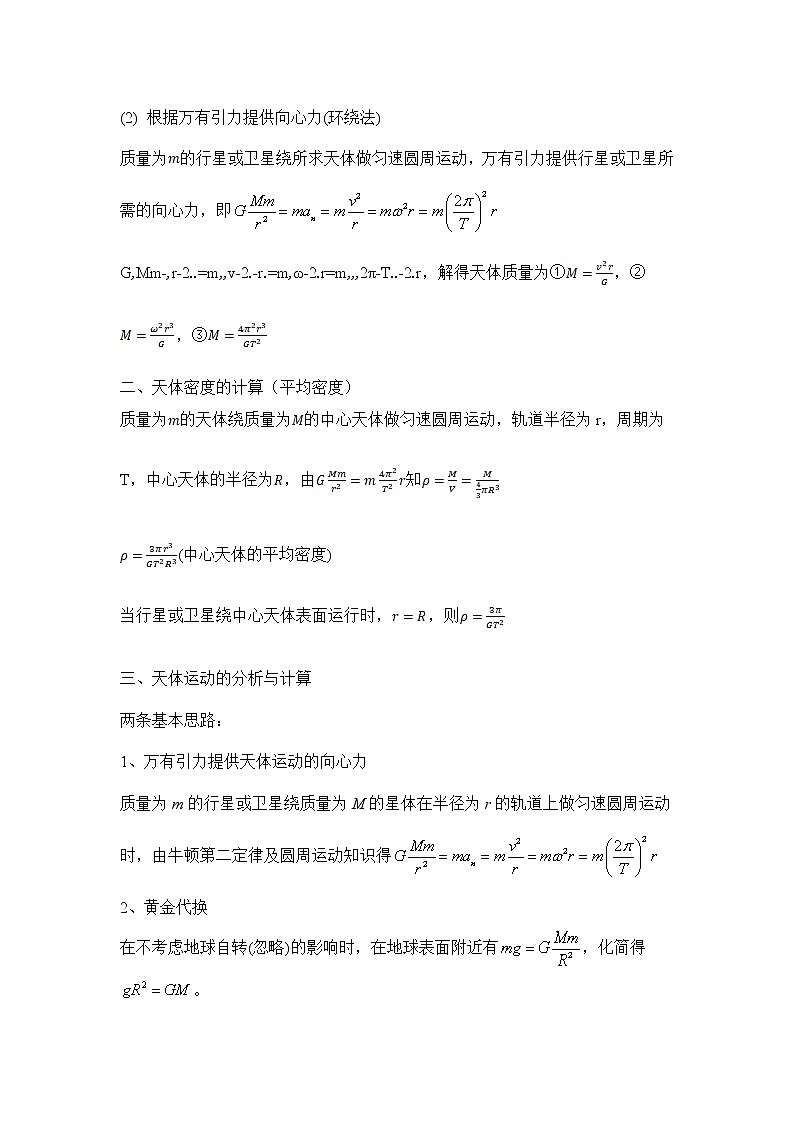 (2) 根据万有引力提供向心力(环绕法)
质量为m的行星或卫星绕所求天体做匀速圆周运动，万有引力提供行星或卫星所
需的向心力，即 G\frac{Mm}{r^2}=ma_n=m\frac{v^2}{r}=mω^2r=m\left(\frac{2π}{T}\right)^2r
G,Mm-,r-2..=m,,v-2.-r.=m,ω-2.r=m,,,2π-T..-2.r，解得天体质量为①M=\frac{v^2r}{G}，②
M=\frac{ω^2r^3}{G}，③M=\frac{4π^2r^3}{GT^2}
二、天体密度的计算（平均密度）
质量为m的天体绕质量为M的中心天体做匀速圆周运动，轨道半径为 r，周期为
T，中心天体的半径为R，由G\frac{Mm}{r^2}=m\frac{4π^2}{T^2}r知ρ=\frac{M}{V}=\frac{M}{\frac{4}{3}πR^3}
ρ=\frac{3πr^3}{GT^2R^3}(中心天体的平均密度)
当行星或卫星绕中心天体表面运行时，r=R，则ρ=\frac{3π}{GT^2}
三、天体运动的分析与计算
两条基本思路：
1、万有引力提供天体运动的向心力
质量为 m 的行星或卫星绕质量为 M 的星体在半径为 r 的轨道上做匀速圆周运动
时，由牛顿第二定律及圆周运动知识得 G\frac{Mm}{r^2}=ma_n=m\frac{v^2}{r}=mω^2r=m\left(\frac{2π}{T}\right)^2r
2、黄金代换
在不考虑地球自转(忽略)的影响时，在地球表面附近有 mg=G\frac{Mm}{R^2}，化简得
gR^2=GM。